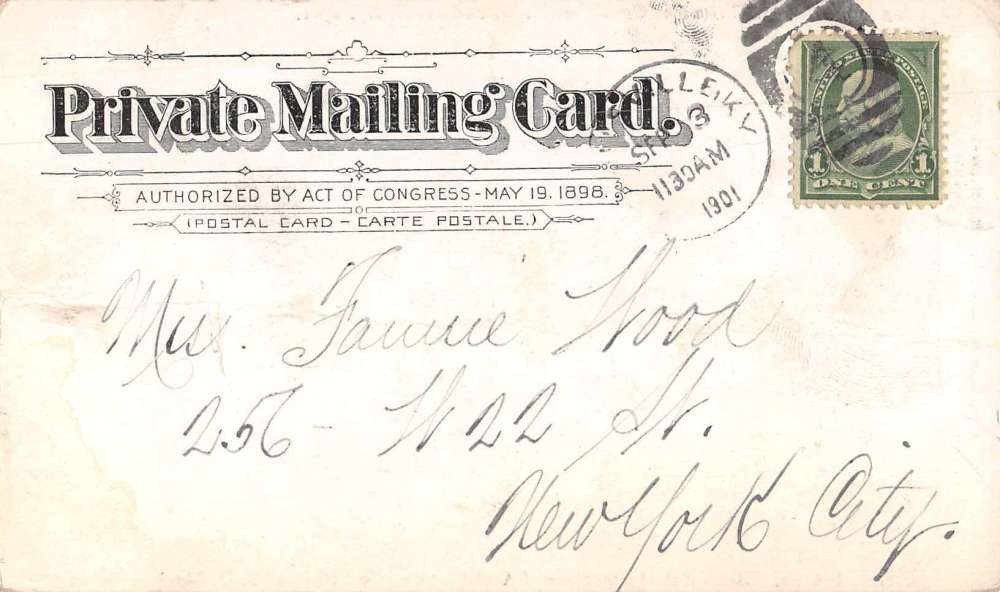 Private Mailing Card.
AUTHORIZED BY ACT OF CONGRESS-MAY 19. 1898.
(POSTAL CARD - CARTE POSTALE.)
KY
SEP 3
1130AM
1901
UNITED STATES POSTAGE
1 1
ONE CENT
Miss. Fannie Wood
256 - W 22 St.
New York City.